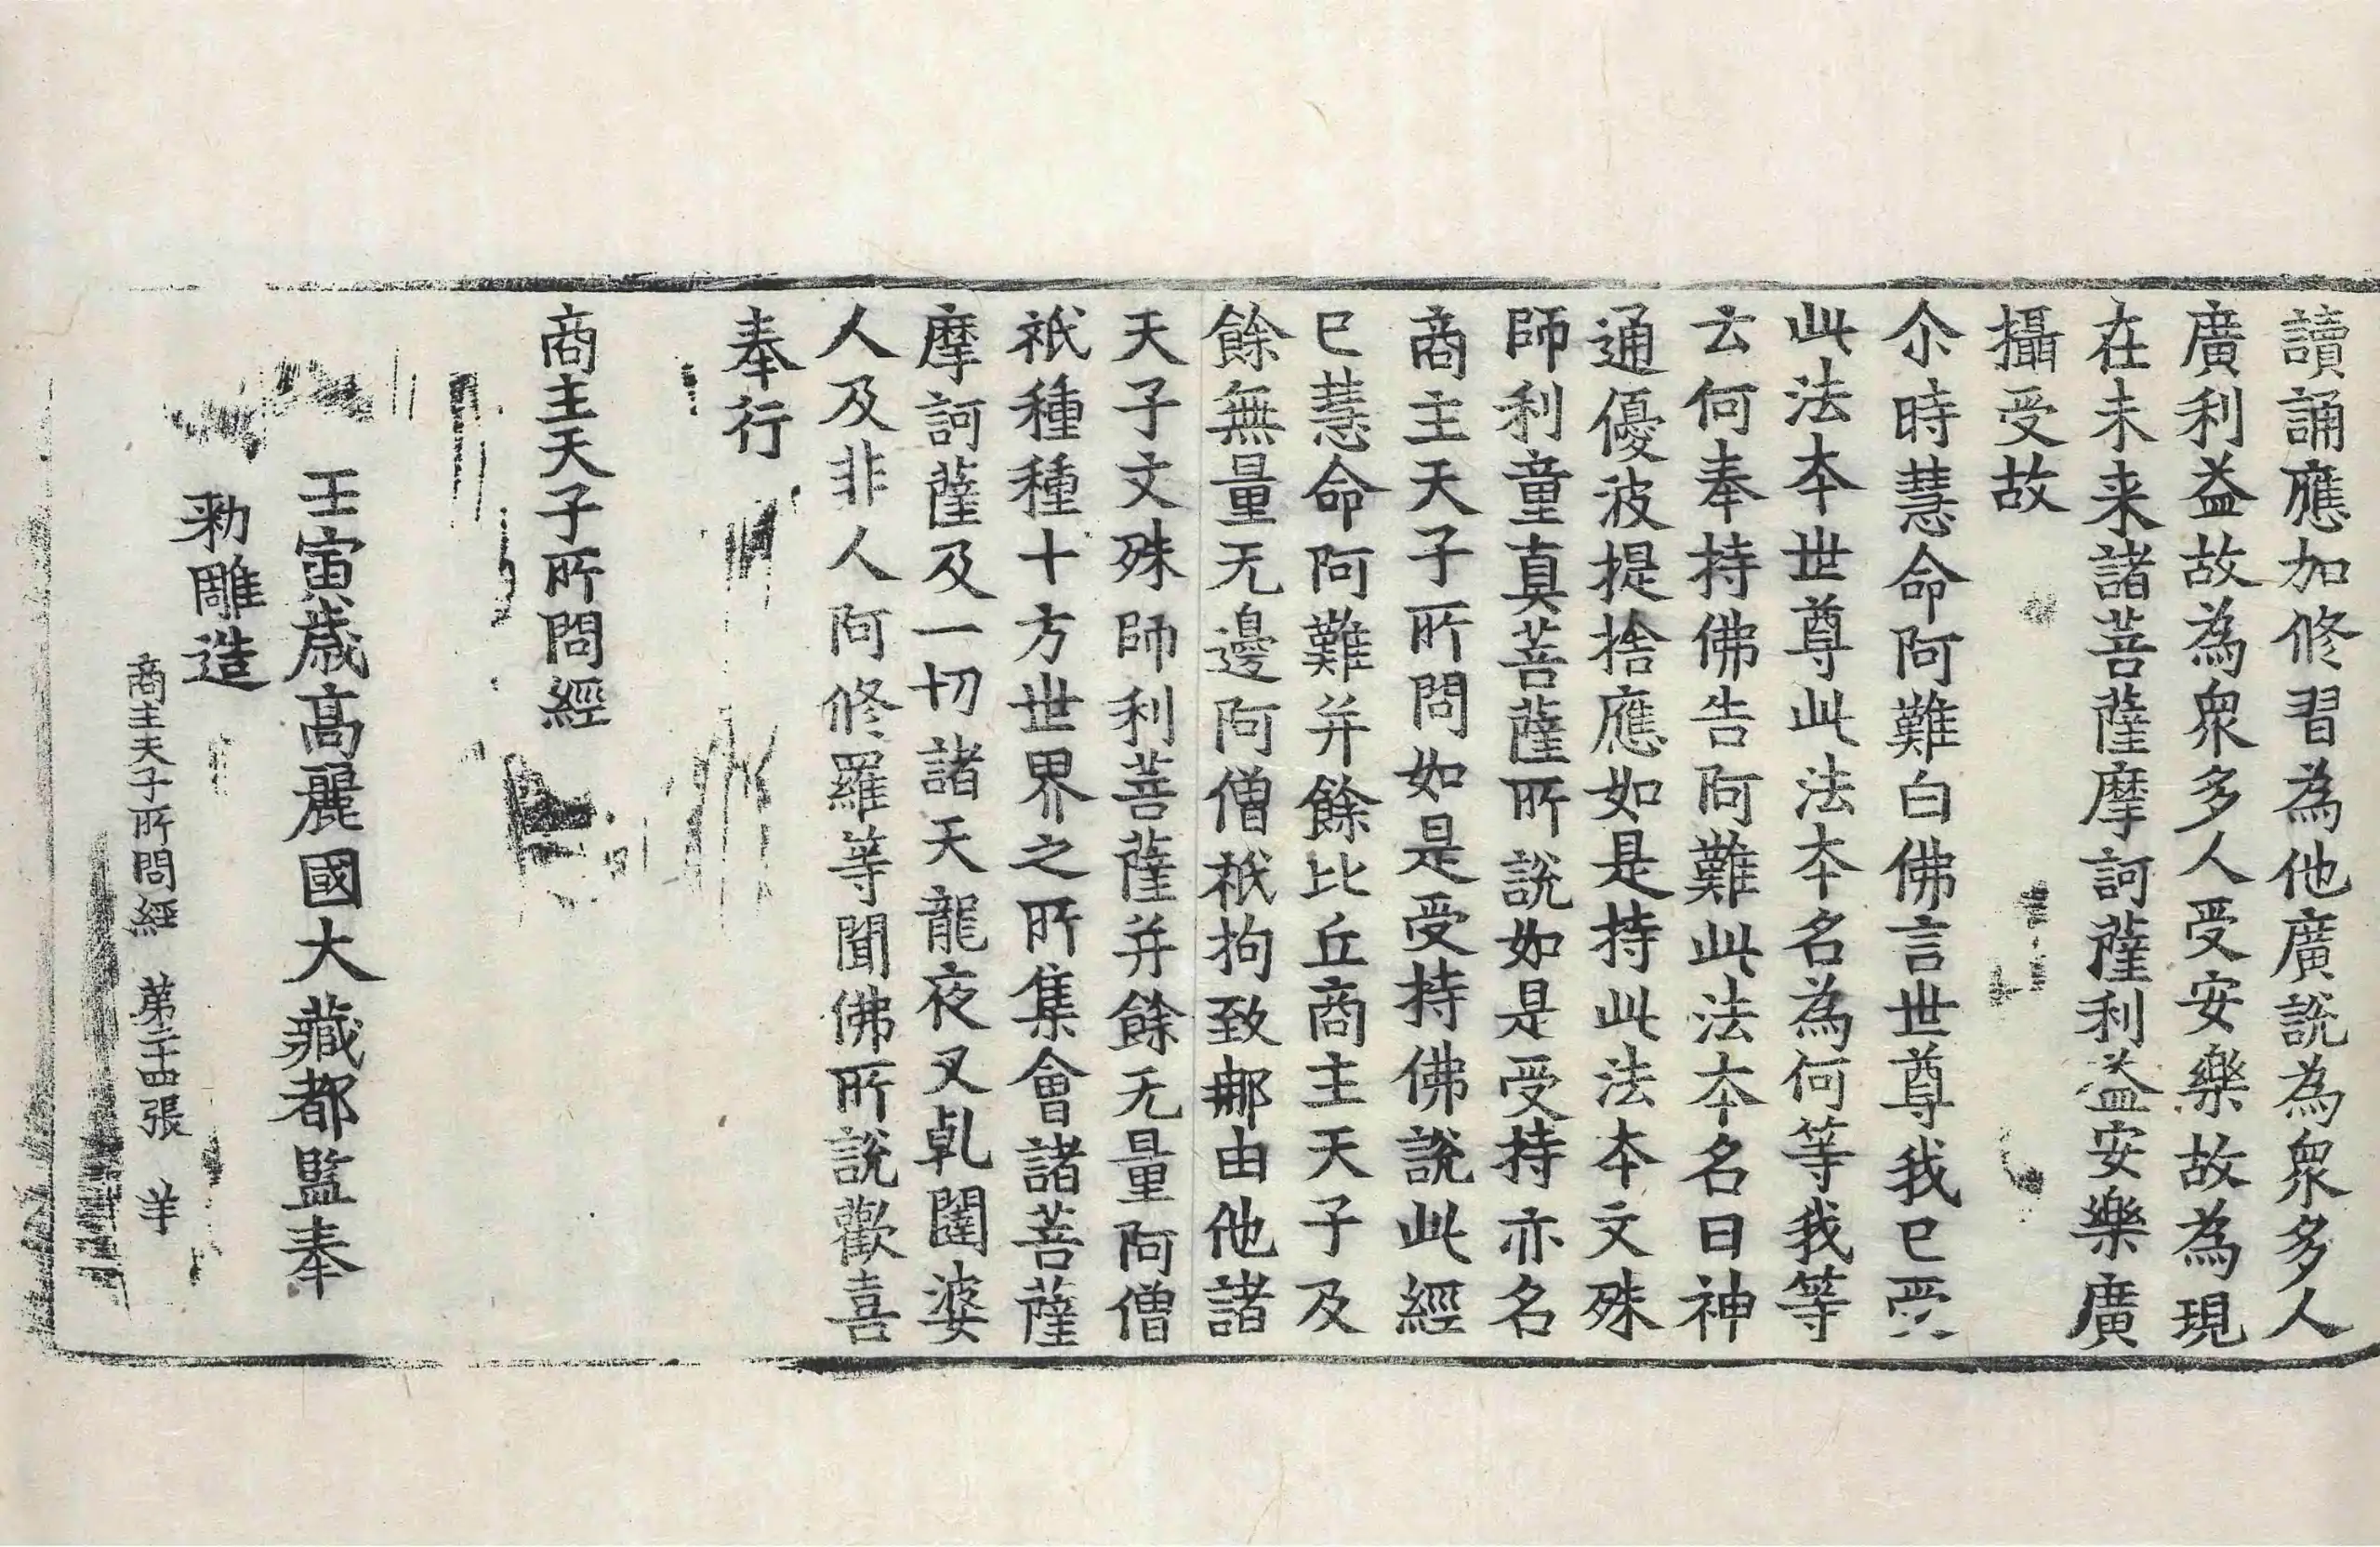 讀誦應加修習為他廣說為衆多人
廣利益故為衆多人受安樂故為現
在未来諸菩薩摩訶薩利益安樂廣
攝受故
尒時慧命阿難白佛言世尊我已受
此法本世尊此法本名為何等我等
云何奉持佛告阿難此法本名曰神
通優波提捨應如是持此法本文殊
師利童真菩薩所說如是受持亦名
商主天子所問如是受持佛說此經
已慧命阿難并餘比丘商主天子及
餘無量无邊阿僧祇拘致那由他諸
天子文殊師利菩薩并餘无量阿僧
祇種種十方世界之所集會諸菩薩
摩訶薩及一切諸天龍夜叉乹闥婆
人及非人阿修羅等聞佛所說歡喜
奉行
商主天子所問經
壬寅歳高麗國大藏都監奉
勑雕造
商主天子所問經 第二十四張 羊